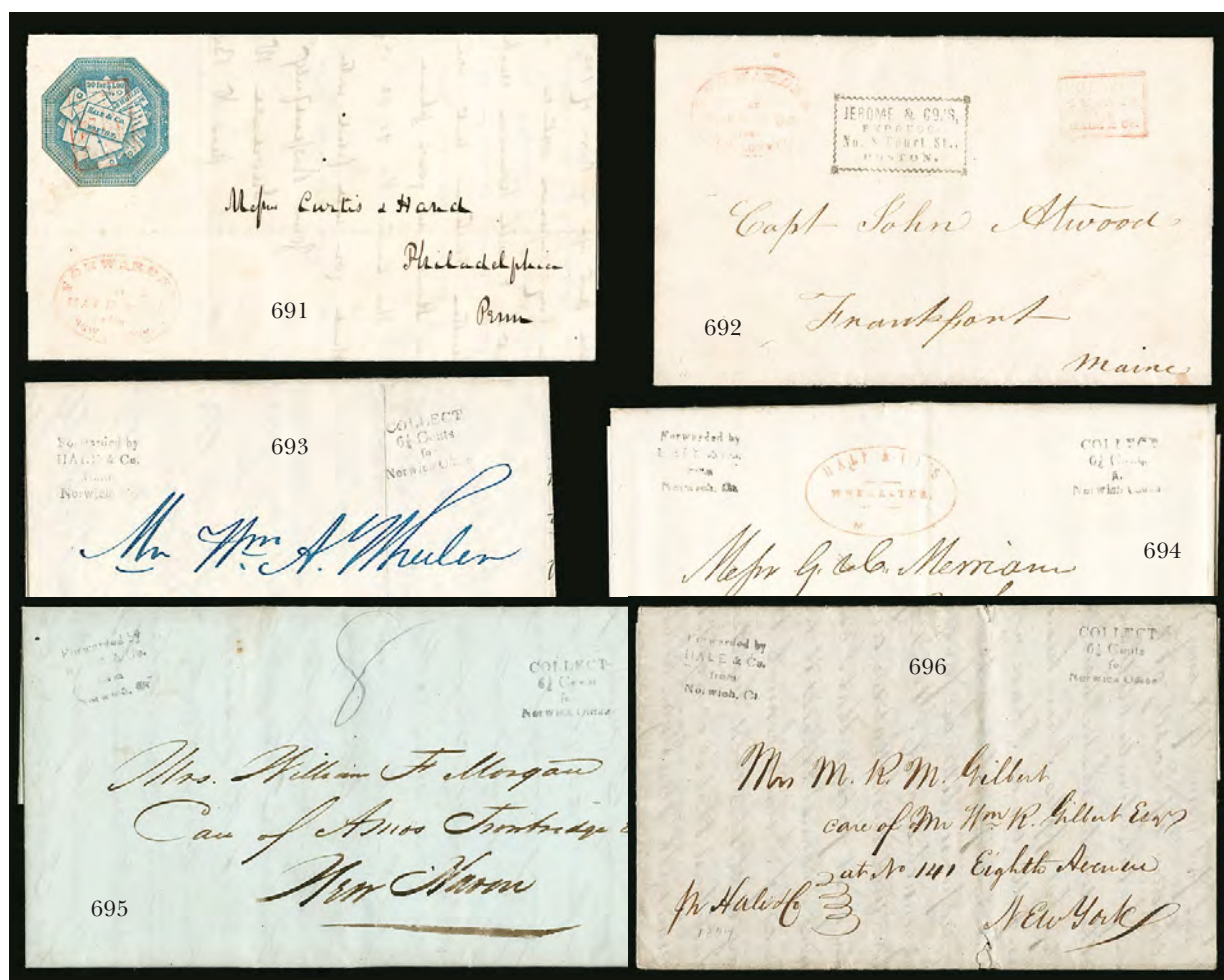 HALE & Co.
Boston.
Messrs Curtis & Hand
Philadelphia
Penn
FORWARDED
691
JEROME & CO'S,
EXPRESS
No. 8 Court St.,
BOSTON.
HALE & CO.
Capt John Atwood
Frankfort
Maine
692
Forwarded by
HALE & Co.
from
Norwich
693
COLLECT
6¼ Cents
for
Norwich Office
Mr Wm. A. Wheeler
Forwarded by
from
Norwich, Ct.
HALE & CO'S
WORCESTER,
COLLECT
6¼ Cents
for
Norwich Office
Messrs G. & C. Merriam
694
Forwarded by
from
Norwich, Ct.
8
COLLECT
6¼ Cents
for
Norwich Office
Mrs. William F Morgan
Care of Amos
New Haven
695
Forwarded by
HALE & Co.
from
Norwich, Ct
696
COLLECT
6¼ Cents
for
Norwich Office
Mrs M. R. M. Gilbert
care of Mr Wm R. Gilbert Esqr
at No 141 Eighth Avenue
New York
pr Hale & Co